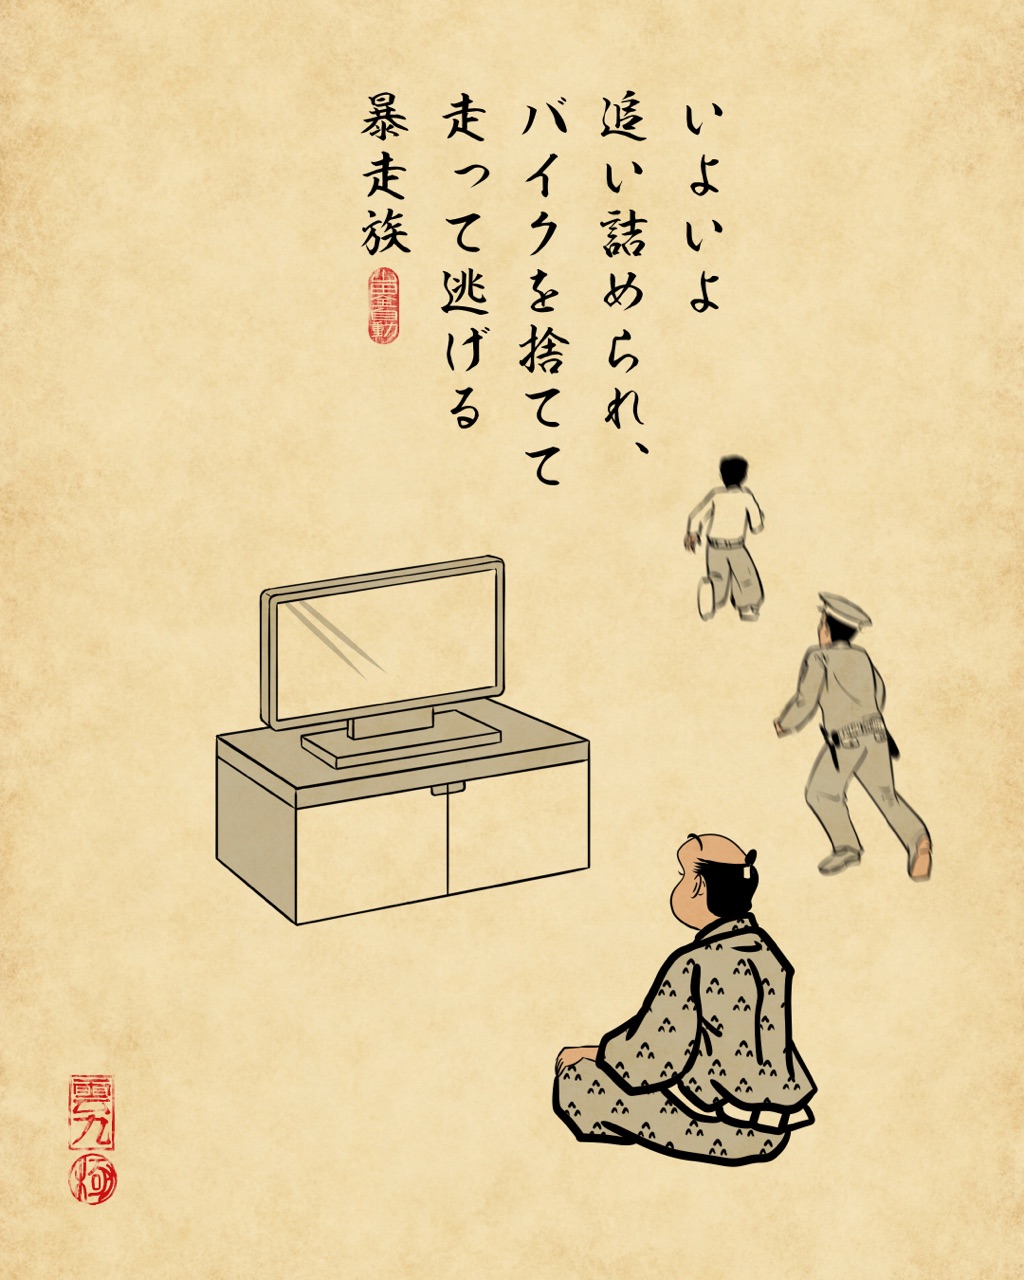 いよいよ
追い詰められ、
バイクを捨てて
走って逃げる
暴走族